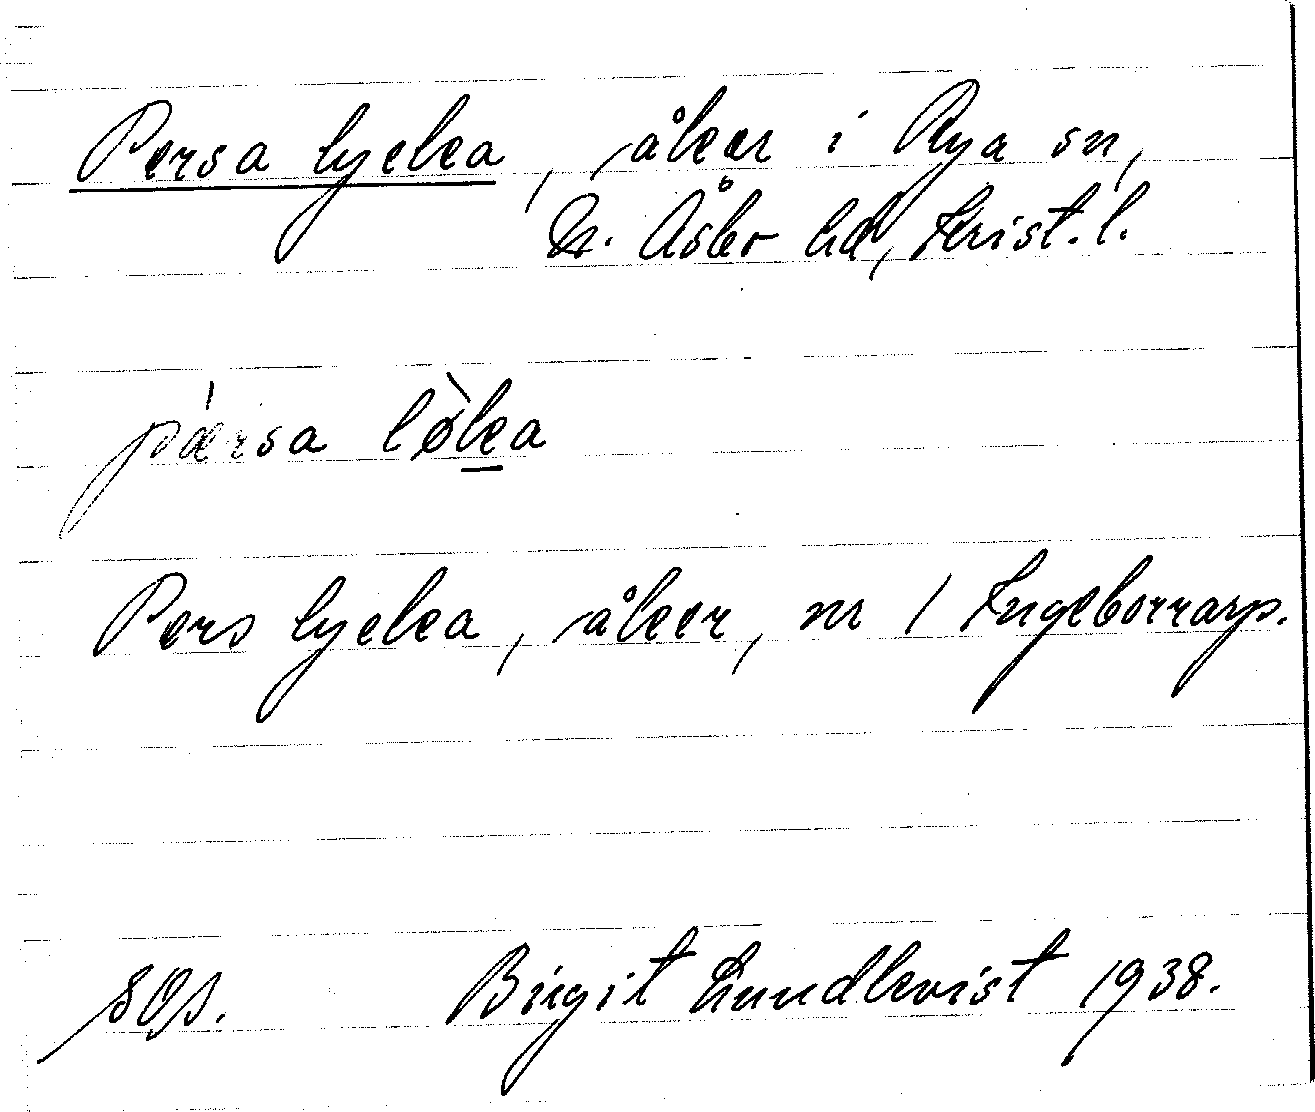 Persa lycka, åker i Rya sn,
N. Åsbo hd, Krist. l.
pærsa løka
Pers lycka, åker, nr 1 Ingeborrarp.
SOA.
Birgit Lundkvist 1938.